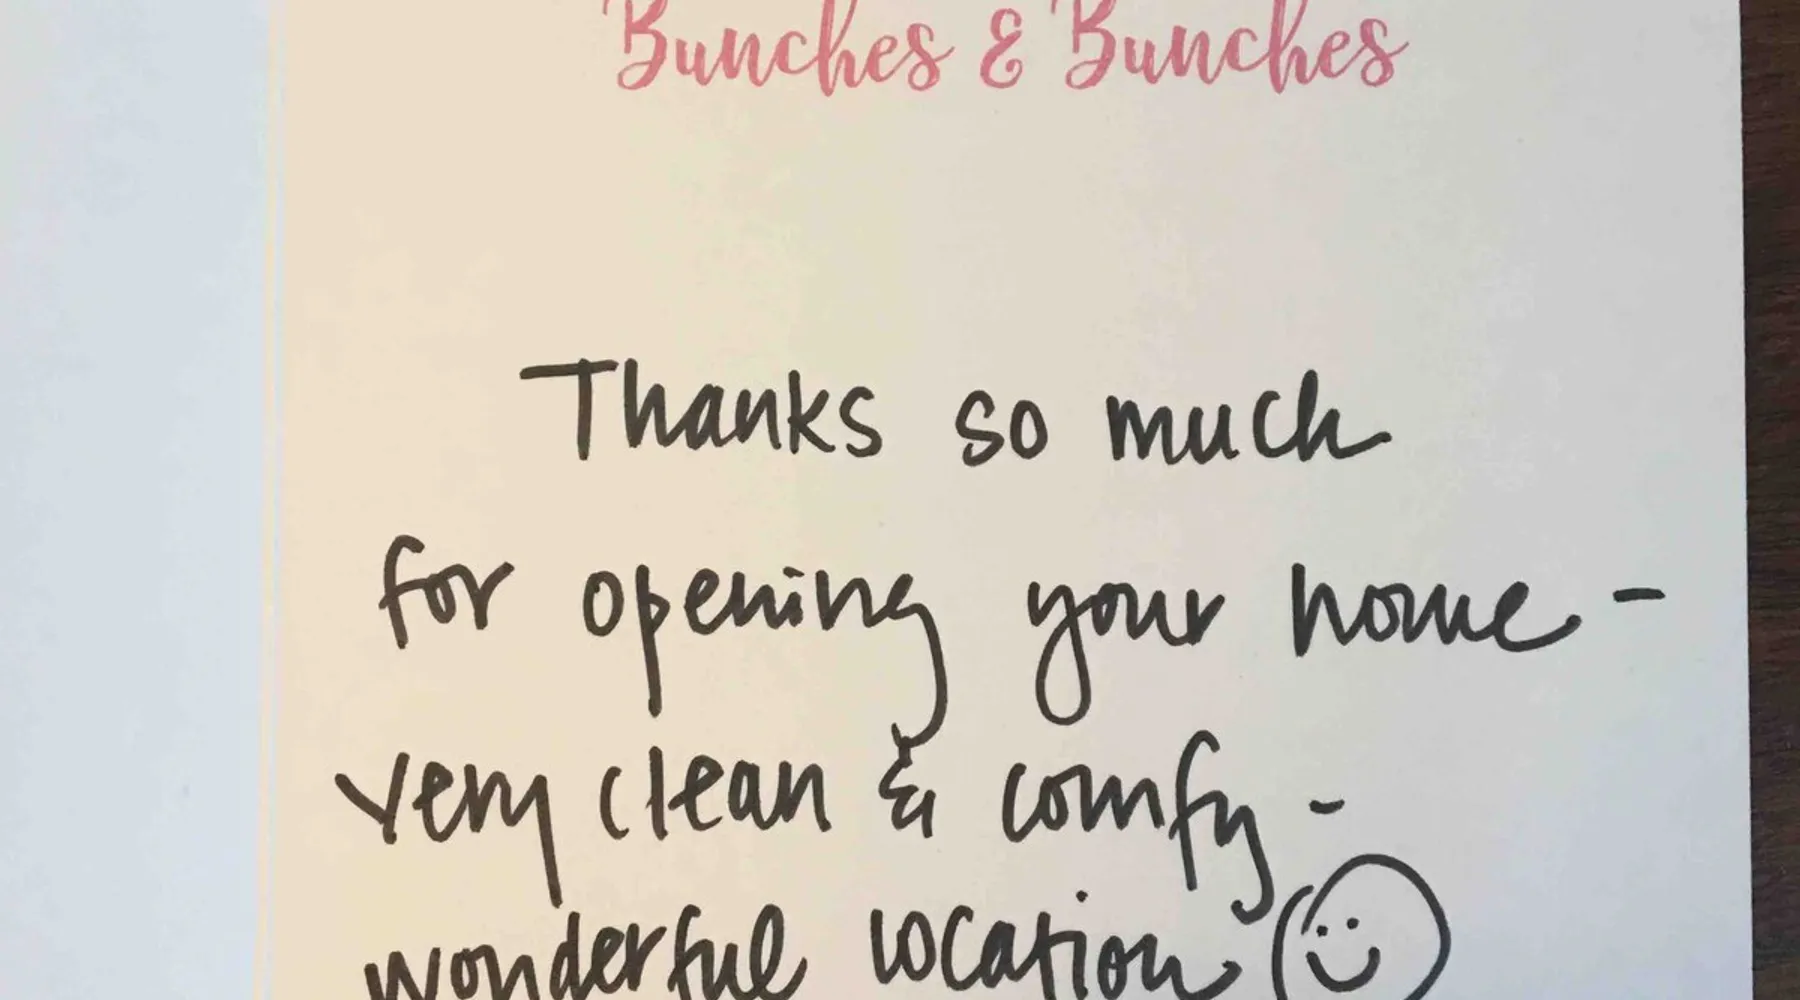 Bunches & Bunches
Thanks so much
for opening your home -
very clean & comfy -
wonderful location